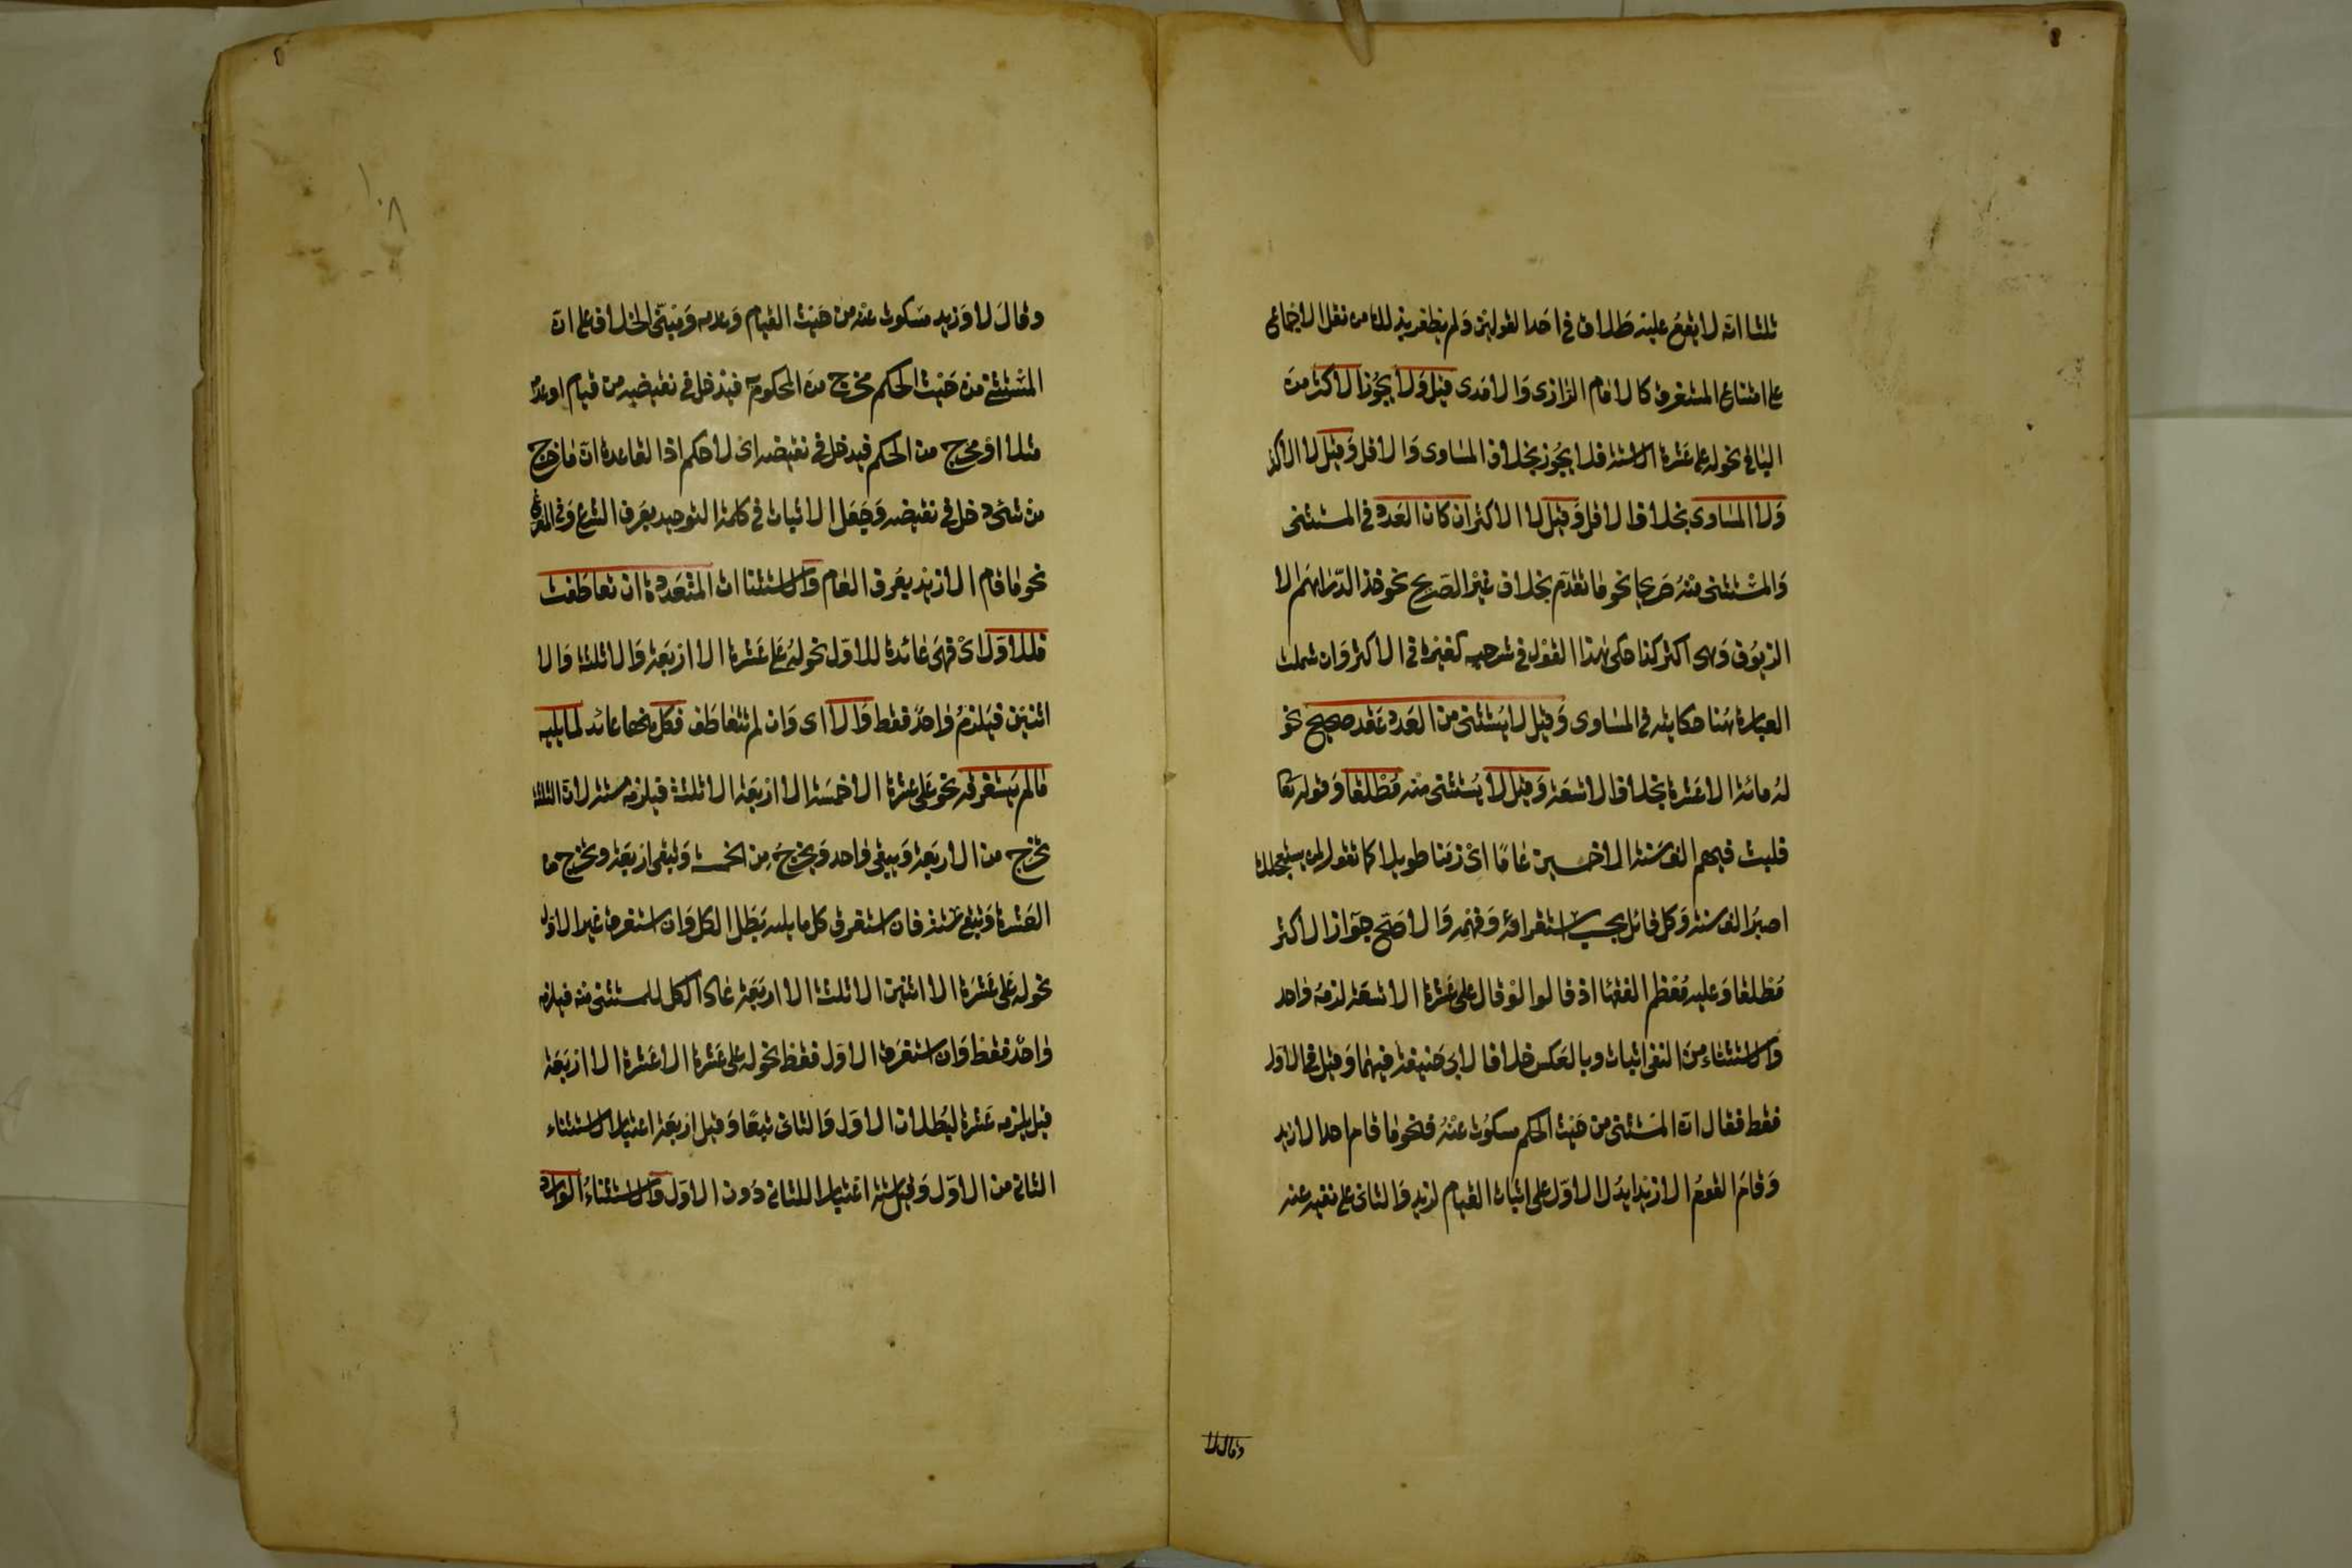 ثلثا انه لا يقع عليه طلاق في احد القولين ولم يظفر بذلك من نقل الاجماع
على امتناع المستغرق كالامام الرازى والامدى قيل ولا يجوز الاكثر من
الباقي نحو له على عشرة الا ستة فلا يجوز بخلاف المساوى والاقل وقيل لا الاكثر
ولا المساوى بخلاف الاقل وقيل لا الاكثر ان كان العدد في المستثنى
والمستثنى منه صريحا نحو ما تقدم بخلاف غير الصريح نحو خذ الدراهم الا
الزيوف وهى اكثر كذا حكى هذا القول في شرحيه كغيره في الاكثر وان شملت
العبارة هنا حكايته في المساوى وقيل لا يستثنى من العدد عقد صحيح نحو
له مائة الا عشرة بخلاف الا تسعة وقيل لا يستثنى منه مطلقا وقوله تعا
فلبث فيهم الف سنة الا خمسين عاما اى زمنا طويلا كما تقول لمن يستعجلك
اصبر الف سنة وكل قائل بحسب استقرائه وفهمه والاصح جواز الاكثر
مطلقا وعليه معظم الفقها اذ قالوا لو قال على عشرة الا تسعة لزمه واحد
والاستثناء من النفى اثبات وبالعكس خلافا لابى حنيفة فيهما وقيل في الاول
فقط فقال ان المستثنى من حيث الحكم مسكوت عنه فنحو ما قام احد الا زيد
وقام القوم الا زيدا يدل الاول على اثبات القيام لزيد والثانى على نفيه عنه
وقال لا
وقال لا وزيد مسكوت عنه من حيث القيام وعدمه ومبنى الخلاف على ان
المستثنى من حيث الحكم مخرج من المحكوم به فيدخل في نقيضه من قيام او عدمه
مثلا او مخرج من الحكم فيدخل في نقيضه اى لا حكم اذ القاعدة ان ما خرج
من شئ دخل في نقيضه وجعل الاثبات في كلمة التوحيد بعرف الشرع وفي المفرغ
نحو ما قام الا زيد بعرف العام والاستثناات المتعددة ان تعاطفت
فللاول اى فهى عائدة للاول نحو له على عشرة الا اربعة والا ثلثة والا
اثنين فيلزم واحد فقط والا اى وان لم تتعاطف فكل منها عائد لما يليه
ما لم يستغرقه نحو على عشرة الا خمسة الا اربعة الا ثلثة فيلزمه ستة لان الثلثة
تخرج من الاربعة ويبقى واحد ويخرج من الخمسة وتبقى اربعة وتخرج من
العشرة وتبقى ستة فان استغرق كل ما يليه بطل الكل وان استغرق غير الاول
نحو له على عشرة الا اثنين الا ثلثة الا اربعة عاد الكل للمستثنى منه فيلزمه
واحد فقط وان استغرق الاول فقط نحو له على عشرة الا عشرة الا اربعة
قيل يلزمه عشرة لبطلان الاول والثانى تبعا وقيل اربعة اعتبارا لاستثناء
الثانى من الاول وقيل ستة اعتبارا للثانى دون الاول والاستثناء الوارد